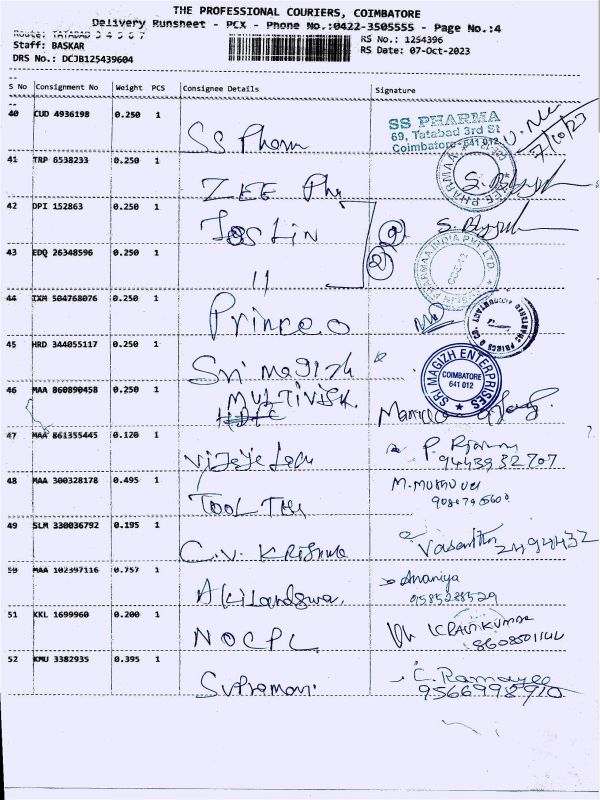 THE PROFESSIONAL COURIERS, COIMBATORE
Delivery Runsheet - PCX - Phone No.:0422-3505555 - Page No.:4
Route: TATABAD 3 4 5 6 7
RS No.: 1254396
Staff: BASKAR
RS Date: 07-Oct-2023
DRS No.: DCJB125439604
S No Consignment No Weight PCS Consignee Details Signature
40 CUD 4936198 0.250 1
SS Pharm
SS PHARMA
69, Tatabad 3rd St
Coimbatore-641 012
7/10/23
41 TRP 6538233 0.250 1
ZEE Ph
42 DPI 152863 0.250 1
Joslin
2
43 EDQ 26348596 0.250 1
11
2
PHARMAA INDIA PVT LTD
44 IXM 504768076 0.250 1
Prince.o
45 HRD 344055117 0.250 1
Sri Magizh
SRI MAGIZH ENTERPRISES
COIMBATORE
641 012
46 MAA 860890458 0.250 1
MULTIVISK
HDFC
47 MAA 861355445 0.120 1
9443932707
48 MAA 300328178 0.495 1
TOOL
49 SLM 330036792 0.195 1
C.V. Krishna
Vasantha 2494432
50 MAA 102397116 0.757 1
Ananiya
9585238529
51 KKL 1699960 0.200 1
NOCPL
K RAVIKUMAR
52 KMU 3382935 0.395 1
Supramani
C. Ramayee
9566998910